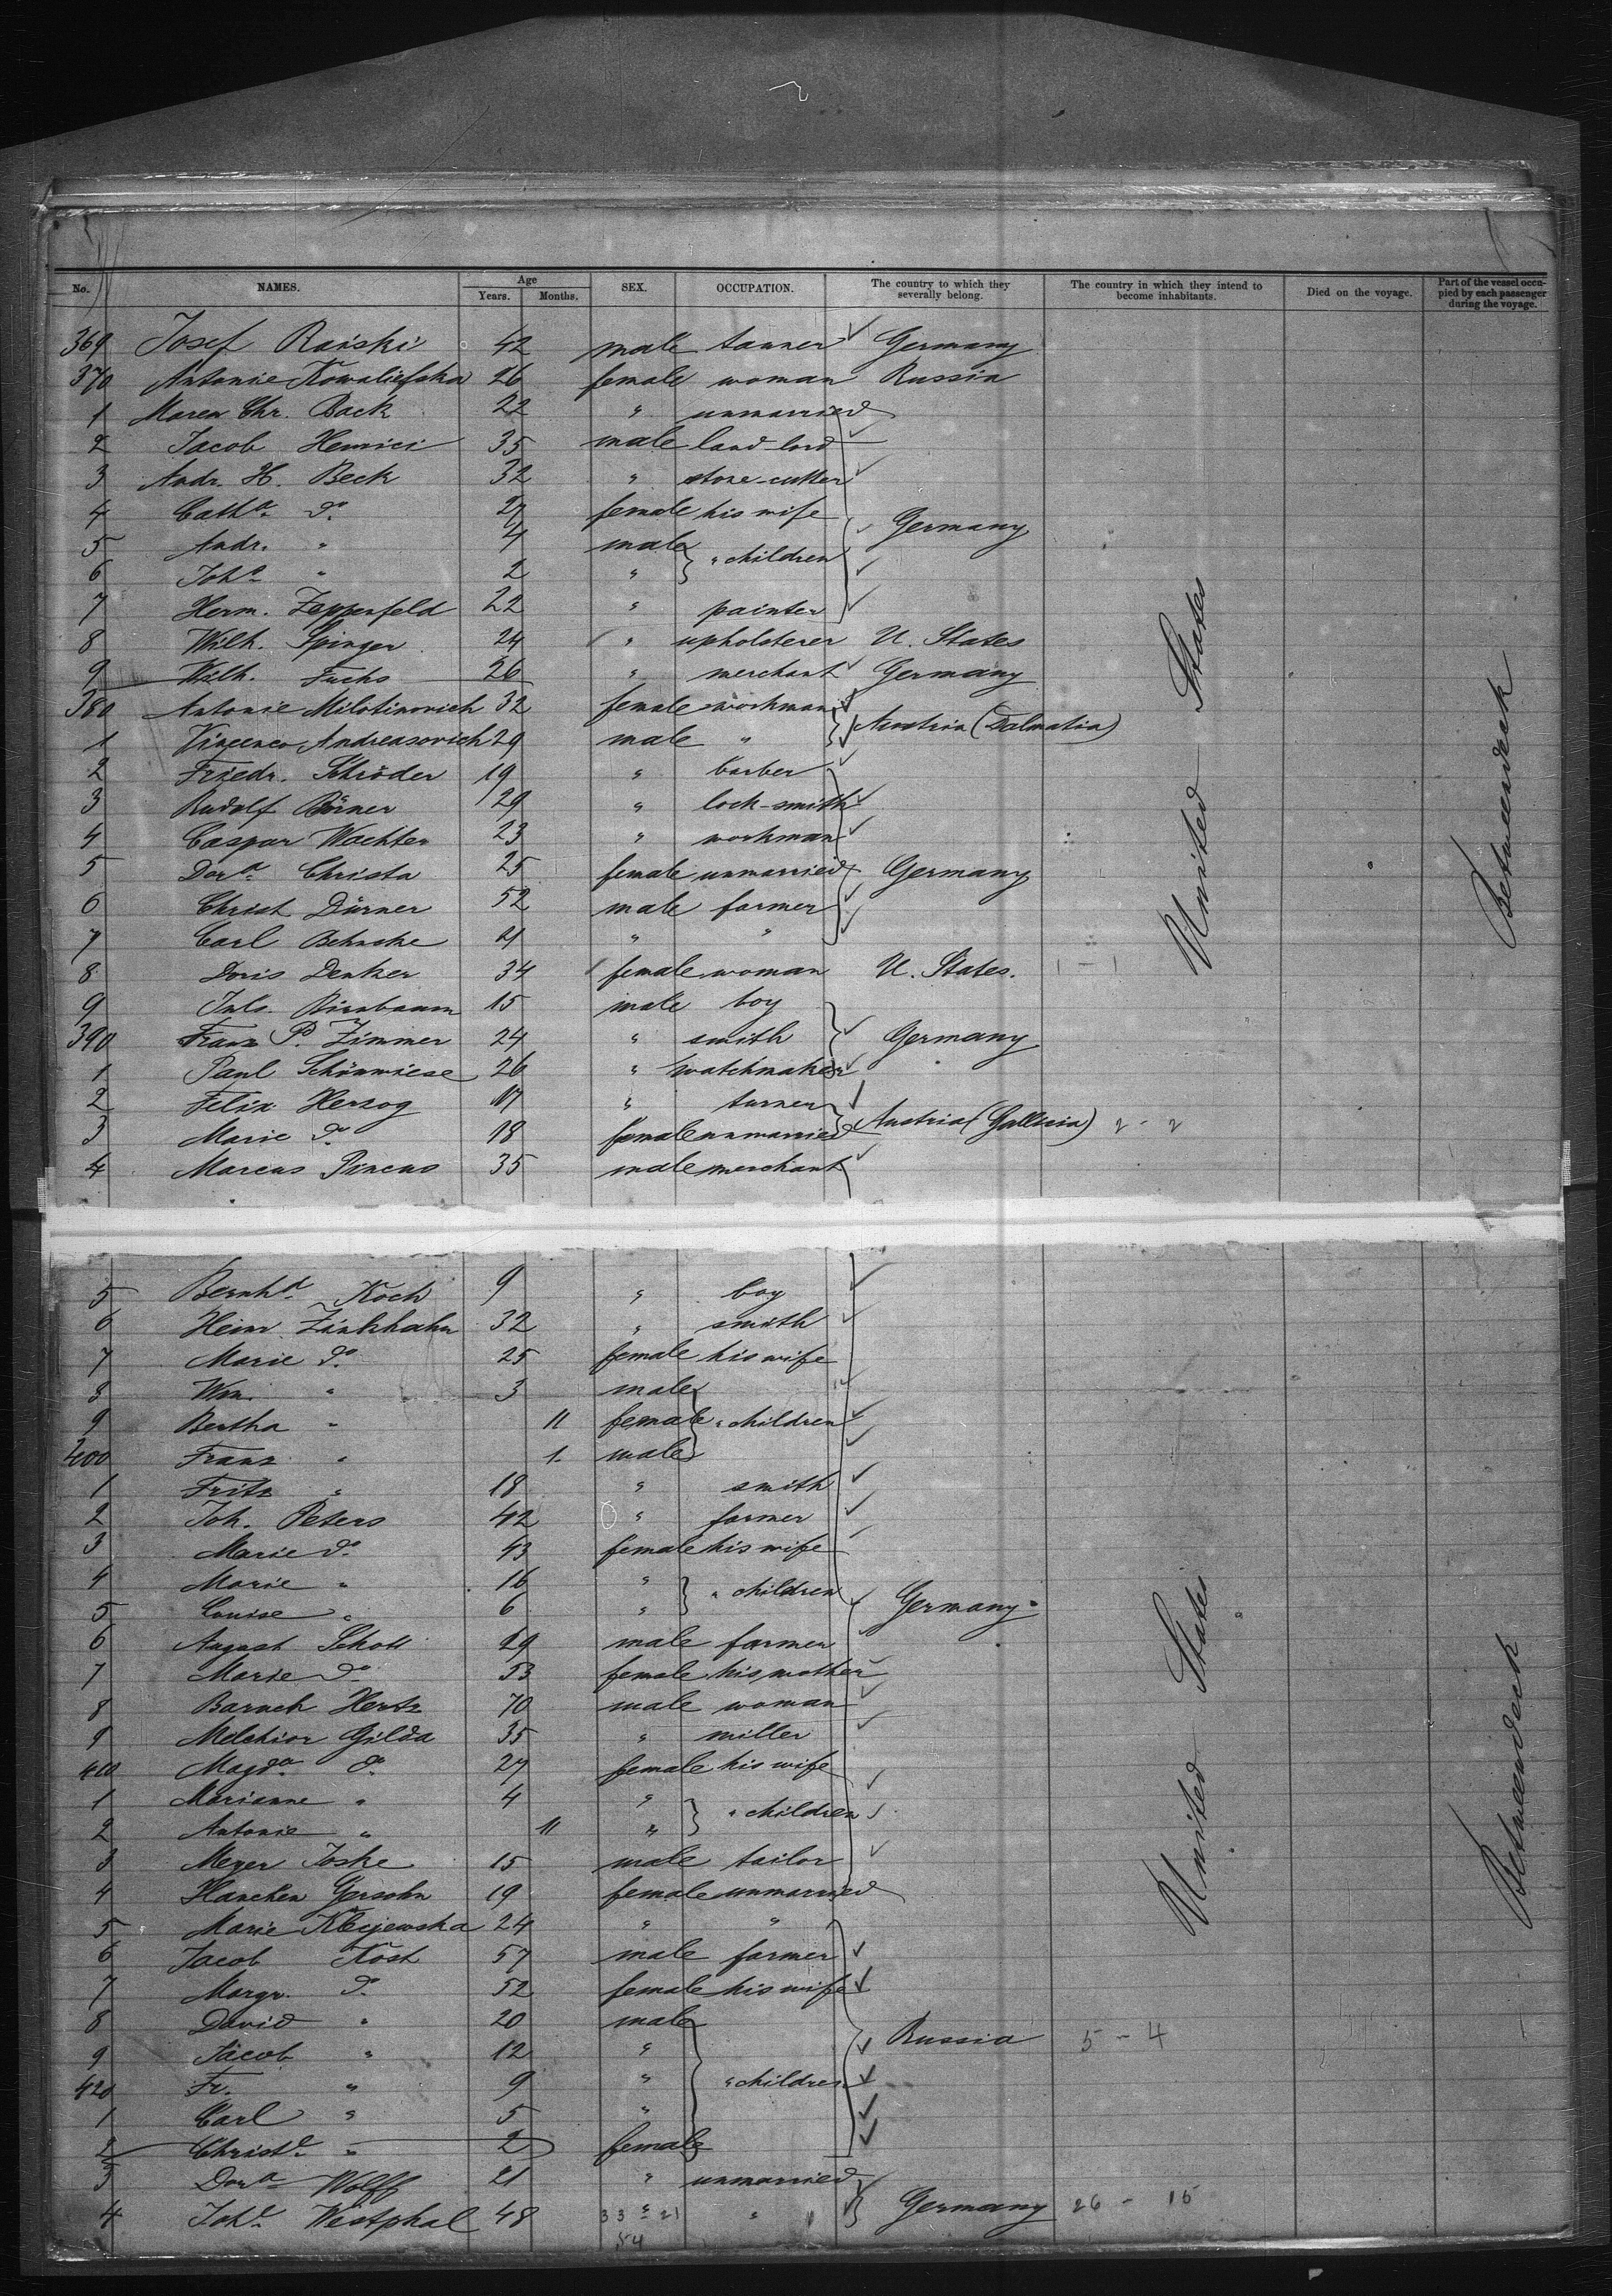 No. NAMES. Age Years. Months. SEX. OCCUPATION. The country to which they severally belong. The country in which they intend to become inhabitants. Died on the voyage. Part of the vessel occupied by each passenger during the voyage.
369 Josef Raiski 42 male tanner Germany
370 Antonie Kowaliefska 26 female woman Russia
1 Maren Chr. Back 22 " unmarried
2 Jacob Henrici 35 male land-lord
3 Andr. H. Beck 32 " stone-cutter
4 Catha. do. 27 female his wife Germany
5 Andr. " 4 male " children
6 Johe. " 2 "
7 Herm. Zeppenfeld 22 " painter
8 Wilh. Spinger 24 " upholsterer U. States
9 Wilh. Fuchs 26 " merchant Germany
380 Antonie Milotinovich 32 female workman Austria (Dalmatia)
1 Vincenco Andreasovich 29 male "
2 Friedr. Schröder 19 " barber
3 Rudolf Börner 29 " lock-smith
4 Caspar Wachter 23 " workman
5 Dora. Christa 25 female unmarried Germany
6 Christ Dürner 52 male farmer
7 Carl Behnke 21 " "
8 Doris Denker 34 female woman U. States. 1 - 1
9 Juls. Birnbaum 15 male boy
390 Franz Pd. Zimmer 24 " smith Germany
1 Paul Schönwiese 26 " watchmaker
2 Felix Herzog 17 " turner Austria (Gallicia) 2 - 2
3 Marie do. 18 female unmarried
4 Marcus Pincus 35 male merchant
United States
Betweendeck
5 Bernhd. Koch 9 " boy
6 Heinr. Zinkhahn 32 " smith
7 Marie do. 25 female his wife
8 Wm. " 3 male
9 Bertha " 11 female " children
400 Franz " 1 male
1 Fritz " 18 " smith
2 Joh. Peters 42 " farmer
3 Marie do. 43 female his wife
4 Marie " 16 " " children
5 Louise " 6 " Germany
6 August Scholl 29 male farmer
7 Marie do. 53 female his mother
8 Baruch Hertz 70 male woman
9 Melchior Gilda 35 " miller
410 Magda. do. 27 female his wife
1 Marianne " 4 " " children
2 Antonie " 11 "
3 Meyer Joske 15 male tailor
4 Hanchen Gersohn 19 female unmarried
5 Marie 24 " "
6 Jacob Kost 57 male farmer
7 Margr. do. 52 female his wife
8 David " 20 male Russia 5 - 4
9 Jacob " 12 "
420 Fr. " 9 " " children
1 Carl " 5 "
2 Christe. " 2 female
3 Dora. Wolff 21 " unmarried
4 Johe. Westphal 48 " " Germany 26 - 15
33 - 21
54
United States
Betweendeck